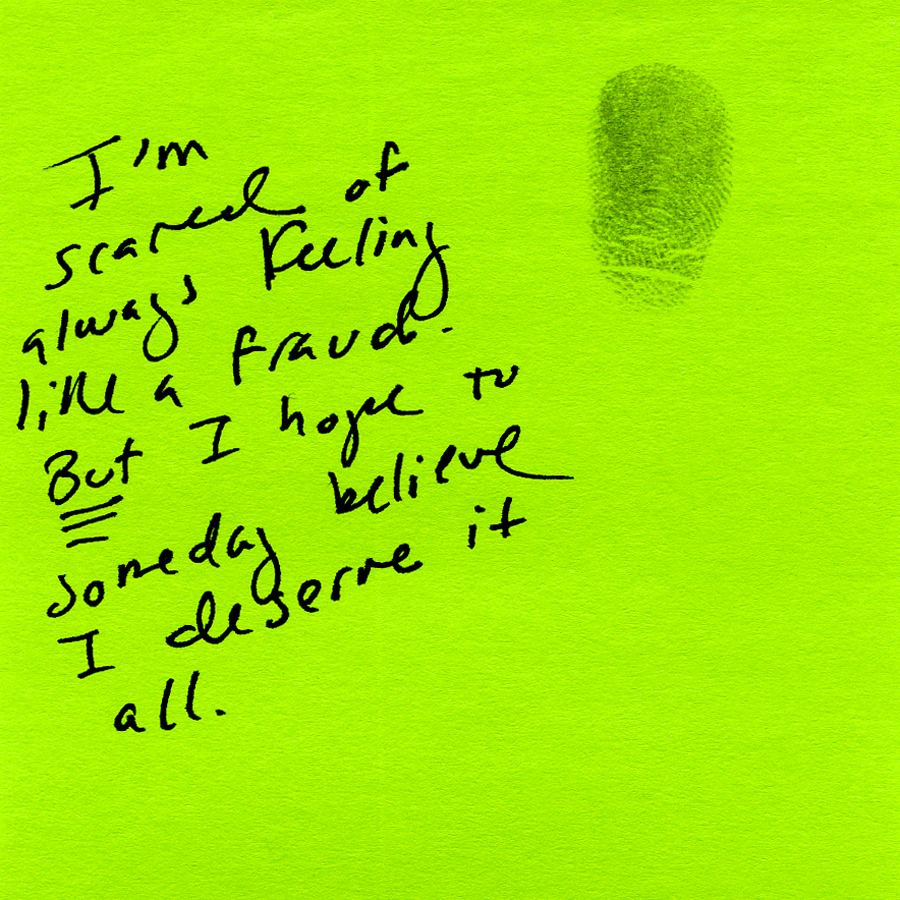 I'm
scared of
always feeling
like a fraud.
But I hope to
someday believe
I deserve it
all.